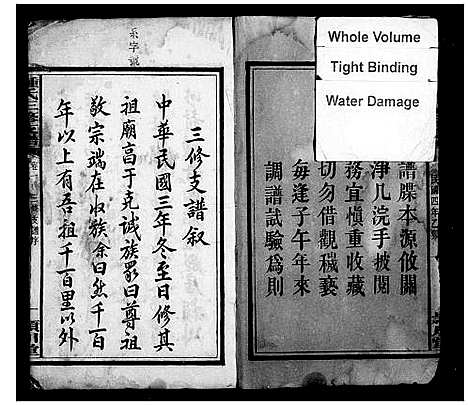 Whole Volume
Tight Binding
Water Damage
譜牒本源攸關
淨几浣手披閱
務宜慎重收藏
切勿借觀穢褻
每逢子午年來
調譜試驗為則
三修支譜叙
中華民國三年冬至日修其
祖廟咼于克誠族眾曰尊祖
敬宗端在收族余曰然千一百
年以上有吾祖千一百里以外